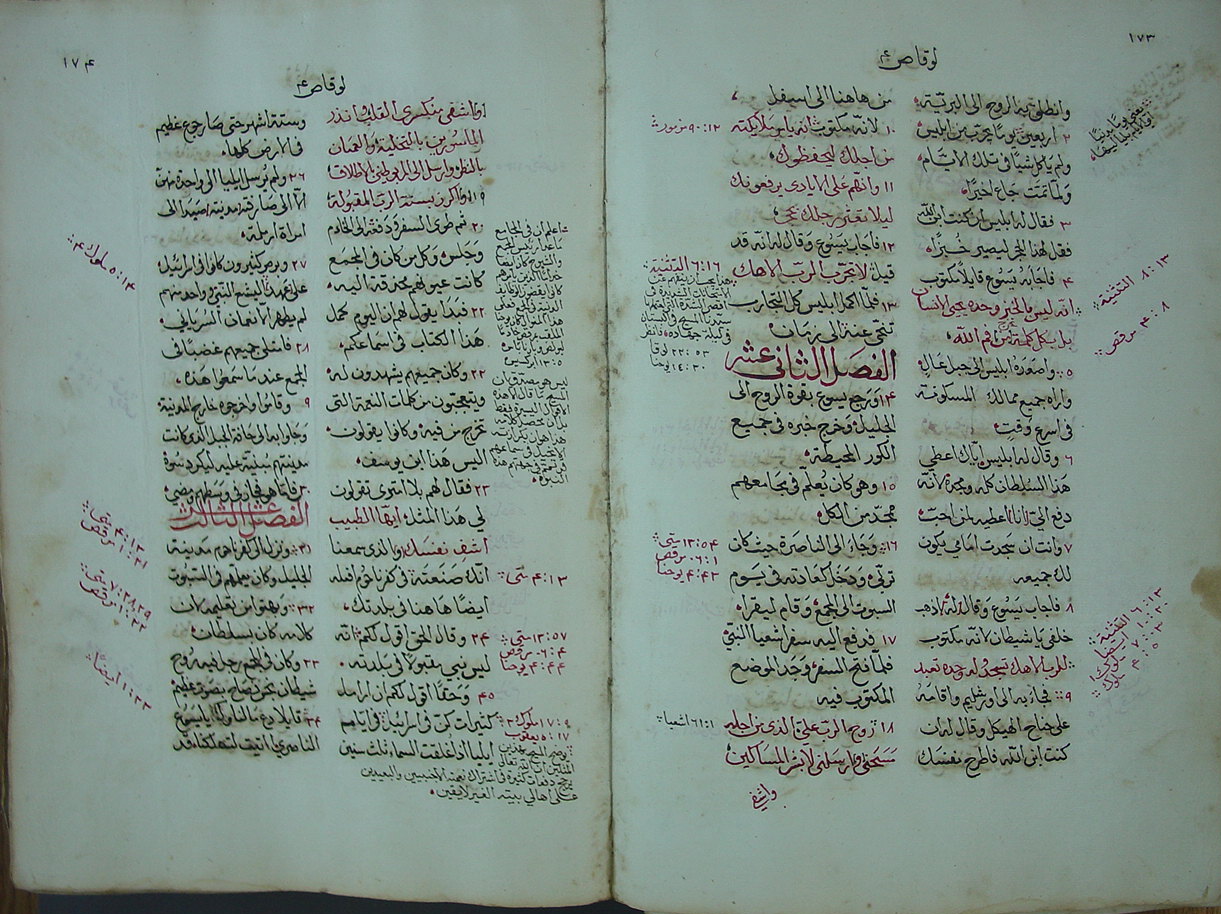 ١٧٣
لوقا ص ٤
وانطلق به الروح الى البريّة.
٢ اربعين يومًا يجرب من ابليس
ولم ياكل شيًا في تلك الايّام
ولما تمّت جاع اخيرًا.
٣ فقال له ابليس ان كنت ابن الله
فقل لهذا الحجر ليصير خبزًا.
٤ فاجابه يسوع قايلًا مكتوب
انه ليس بالخبز وحده يحيى الانسان
بل بكل كلمة من فم الله.
٥ واصعده ابليس الى جبل عالٍ
واراه جميع ممالك المسكونة
في اسرع وقتٍ
٦ وقال له ابليس ايّاك اعطي
هذا السلطان كله ومجده لانه
دفع اليّ وانا اعطيه لمن احبّ.
٧ وانت ان سجدت امامي يكون
لك جميعه
٨ فاجاب يسوع وقال له اذهب
خلفي يا شيطان لانه مكتوب
للرب الاهك تسجد وله وحده تعبد
٩ فجا به الى اورشليم واقامه
على جناح الهيكل وقال له ان
كنت ابن الله فاطرح نفسك
٨:١٣ التثنية
٤:٨ مرقص
٦:١٣ التثنية
من هاهنا الى اسفل
١٠ لانه مكتوب انه يامر ملايكته
من اجلك ليحفظوك.
١١ وانهم على الايادي يرفعونك
ليلا تعثر رجلك بحجر.
١٢ فاجاب يسوع وقال له انه قد
قيل لا تجرّب الرب الاهك
١٣ فلمّا اكمل ابليس كل التجارب
تنحى عنه الى زمان.
الفصل الثاني عشر
١٤ ورجع يسوع بقوة الروح الى
الجليل وخرج خبره في جميع
الكور المحيطة.
١٥ وهو كان يُعلّم في مجامعهم
ممجّد من الكل.
١٦ وجاء الى الناصرة حيث كان
تربّى ودخل كعادته في يوم
السبوت الى المجمع وقام ليقرا.
١٧ فدفع اليه سفر اشعيا النبيّ
فلمّا فتح السفر وجد الموضع
المكتوب فيه
١٨ روح الربّ عليّ الذي من اجله
مسحني وارسلني لابشر المساكين
واشفي
٩٠:١٢ مزمور
٦:١٦ التثنية
٢٢:٥٣ لوقا
١٤:٣٠ يوحنا
١٣:٥٤ متى
٦:١ مرقص
٤:٤٣ يوحنا
٦١:١ اشعيا
١٧٤
لوقا ص ٤
واشفي منكسري القلب وانذر
الماسورين بالتخلية والعميان
بالنظر وارسل المربوطين بالاطلاق
١٩ واكرز بسنة الرب المقبولة
٢٠ ثم طوى السفر ودفعه الى الخادم
وجلس وكل من كان في المجمع
كانت عيونهم محدقة اليه.
٢١ فبدا يقول لهم ان اليوم كمل
هذا الكتاب في سماعكم.
٢٢ وكان جميعهم يشهدون له
ويتعجبون من كلمات النعمة التي
تخرج من فيه وكانوا يقولون
اليس هذا ابن يوسف.
٢٣ فقال لهم بلا امترى تقولون
لي هذا المثل ايها الطبيب
اشفِ نفسك والذي سمعنا
انك صنعته في كفرناحوم افعله
ايضًا هاهنا في بلدتك
٢٤ وقال الحق اقول لكم انه
ليس نبي مقبولًا في بلدته.
٢٥ وحقًا اقول لكم ان ارامل
كثيرات كنّ في اسراييل في ايام
ايليا اذ اغلقت السماء ثلث سنين
٤:١٣ متى
١٣:٥٧ متى
٦:٤ مرقص
٤:٤٤ يوحنا
١٧:٩ ملوك ٣
٥:١٧ يعقوب
على اهالي بيته الغير لايقين.
وستة اشهر حتى صار جوع عظيم
في الارض كلها.
٢٦ ولم يُرسل ايليا الى واحدة منهن
الّا الى صارفة مدينة صيدا الى
امراة ارملة.
٢٧ وبرص كثيرون كانوا في اسرائيل
على عهد اليشع النبيّ وواحد منهم
لم يطهر الا نعمان السرياني.
٢٨ فامتلى جميعهم غضبًا في
المجمع عند ما سمعوا هذه.
٢٩ وقاموا واخرجوه خارج المدينة
وجاوا به الى حافة الجبل الذي كانت
مدينتهم مبنية عليه ليكردسوه
٣٠ فامّا هو فجاز في وسطهم ومضى
الفصل الثالث عشر
٣١ ونزل الى كفرناحوم مدينة
الجليل وكان يعلّمهم في السبوت
٣٢ وبهتوا من تعليمه لان
كلامه كان بسلطان.
٣٣ وكان في المجمع رجل فيه روح
شيطان نجس فصاح بصوت عظيم
٣٤ قايلًا دع ما لنا ولك يا يسوع
الناصري اتيت لتهلكنا قد
٥:١٤ ملوك ٤
٤:١٣ متى
١:٢١ مرقص
٧:٢٨،٢٩ متى
١:٢٢ مرقص
١:٢٣ ايضًا